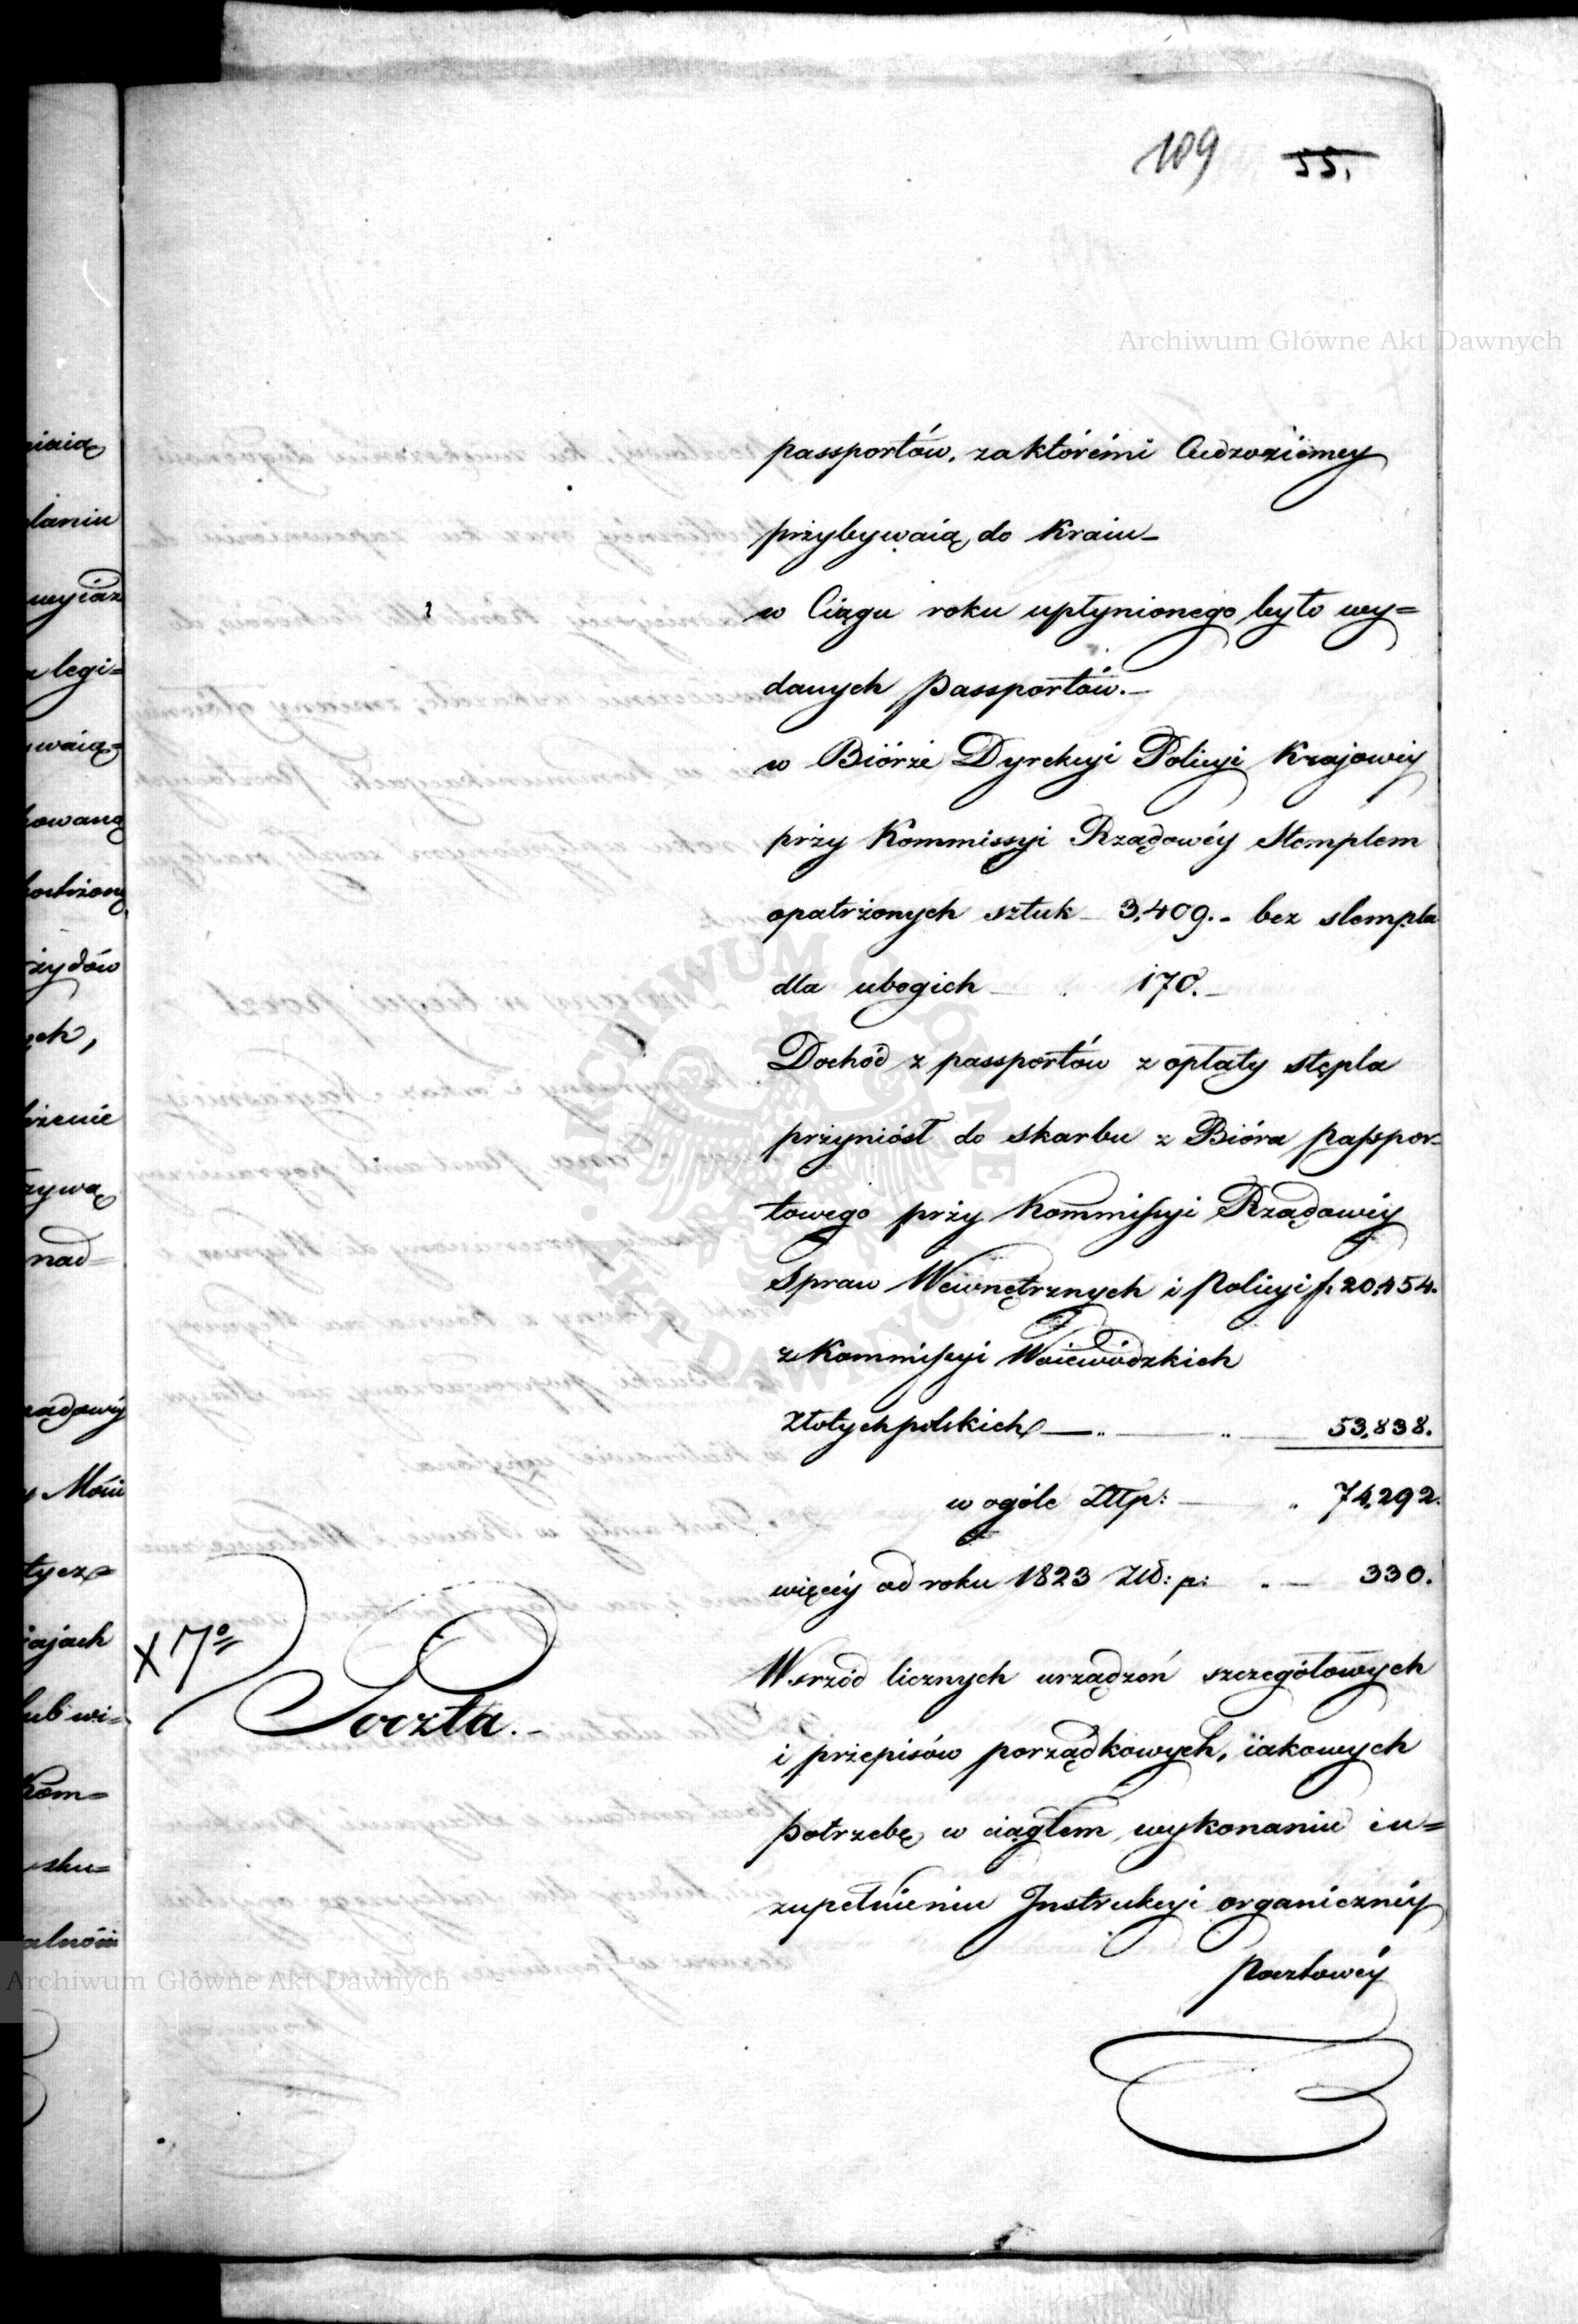 109 55.
Archiwum Główne Akt Dawnych
passportów, za któremi Cudzoziemcy
przybywaią do Kraiu_
w Ciągu roku upłynionego było wy=
danych Passportów._
w Biórze Dyrekcyi Policyi Krajowéy
przy Kommissyi Rządowéy Stemplem
opatrżonych sztuk _ 3,409._ bez stempla
dla ubogich _ . 170._
Dochód z passportów z opłaty stępla
przyniósł do skarbu z Bióra passpor=
towego przy Kommissyi Rządowéy
Spraw Wewnętrznych i Policyi f. 20,454.
z Kommissyi Woiewódzkich
Złotych polskich — „ — „ — 53,838.
w ogóle Złtp: — „ 74,292.
więcéy od roku 1823 Złł: p: „ — 330.
X 7º
Poczta._
Wsrzód licznych urządzeń szczegółowych
i przepisów porządkowych, iakowych
potrzebę w ciągłem wykonaniu i u=
zupełnieniu Instrukcyi organicznéy
Pocztowéy
niaią
daniu
wyiaz
legi=
waią=
kowaną
żydów
ych,
rżenie
zywa
nad=
ządowéy
Mówi
tycz
iajach
lub wi=
Kom=
sku=
alnóśi
Archiwum Główne Akt Dawnych
ARCHIWUM GŁÓWNE · AKT DAWNYCH ·